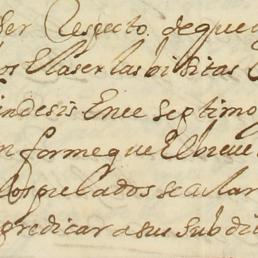 ser Respecto. deque
los Elaser las bisitas
indesis Enee septimo
n forme que Elbreue
los prelados se aclar
predicar a sus subdi